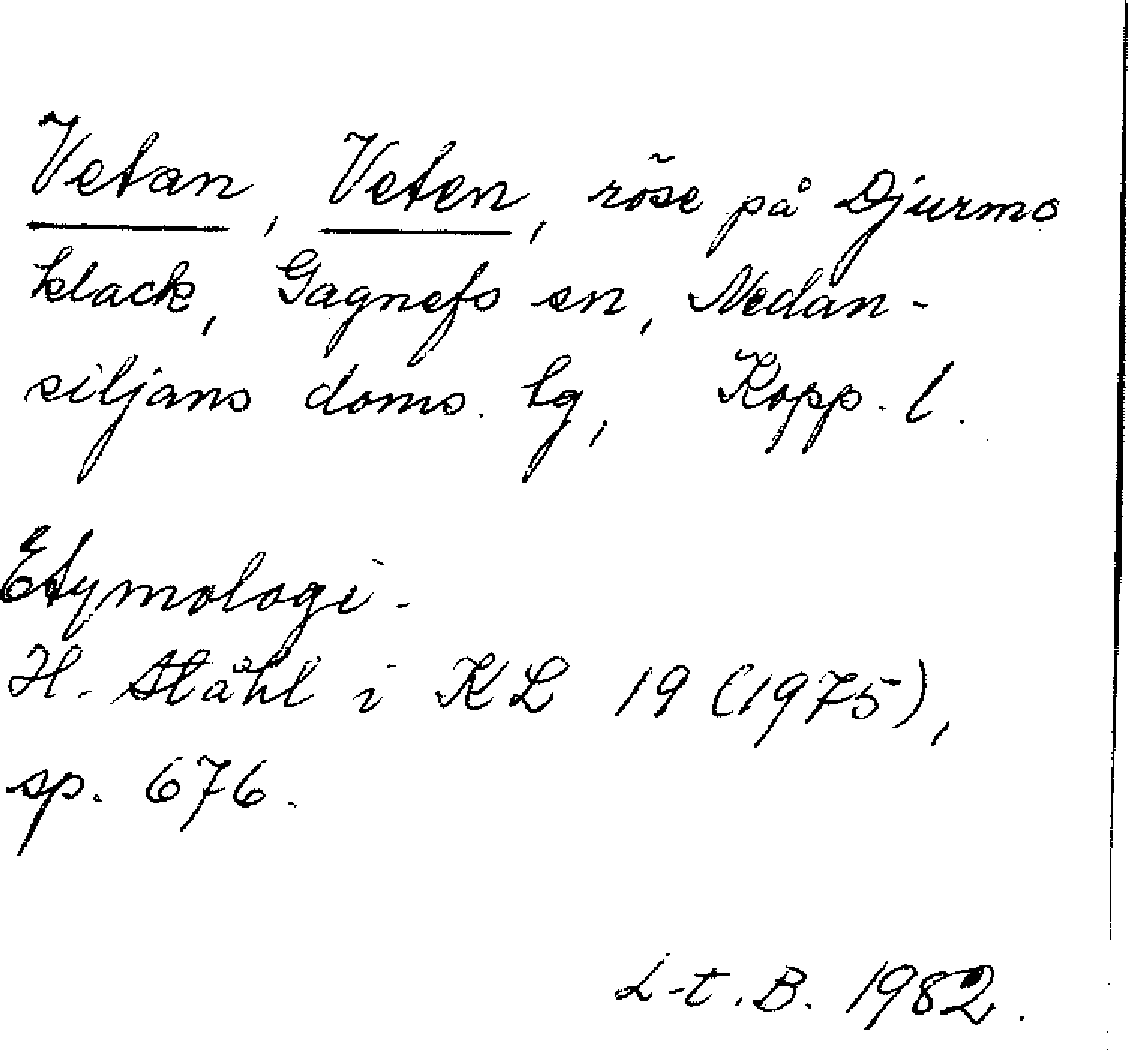 Vetan, Veten, röse på Djurmo
klack, Gagnefs sn, Nedan-
siljans doms. lg, Kopp. l.
Etymologi.
H. Ståhl i KL 19 (1975),
sp. 676.
L-t. B. 1982.